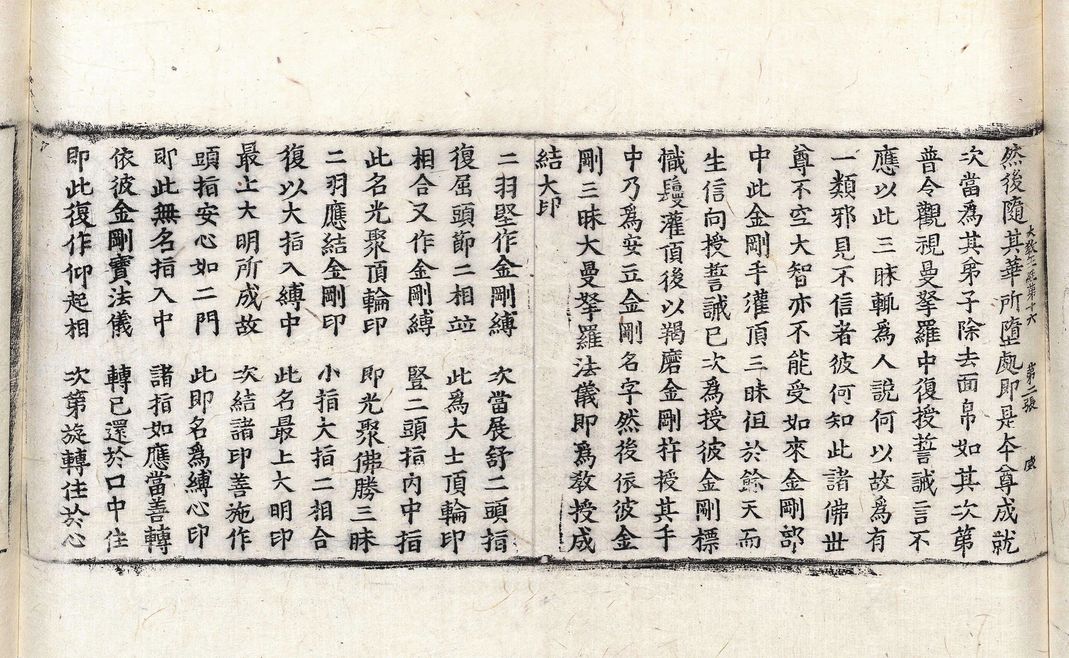 然後隨其華所墮處即是本尊成就
大教王經第十六 第二張
次當爲其弟子除去面帛如其次第
普令觀視曼拏羅中復授誓誡言不
應以此三昧輒爲人說何以故爲有
一類邪見不信者彼何知此諸佛世
尊不空大智亦不能受如來金剛部
中此金剛手灌頂三昧徂於餘天而
生信向授誓誡已次爲授彼金剛標
幟鬘灌頂後以羯磨金剛杵授其手
中乃爲安立金剛名字然後依彼金
剛三昧大曼拏羅法儀即爲敎授成
結大印
二羽堅作金剛縛 次當展舒二頭指
復屈頭節二相並 此爲大士頂輪印
相合又作金剛縛 豎二頭指內中指
此名光聚頂輪印 即光聚佛勝三昧
二羽應結金剛印 小指大指二相合
復以大指入縛中 此名最上大明印
最上大明所成故 次結諸印善施作
頭指安心如二門 此即名爲縛心印
即此無名指入中 諸指如應當善轉
依彼金剛寶法儀 轉已還於口中住
即此復作仰起相 次第旋轉住於心